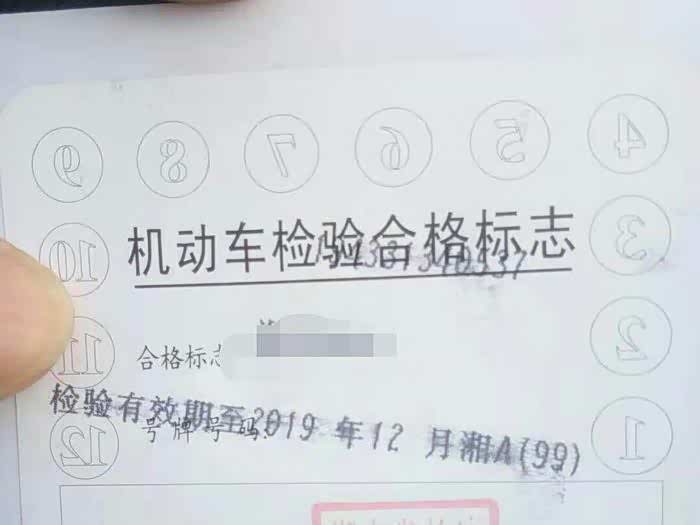 9 8 7 6 5 4
3
机动车检验合格标志
10
2
合格标志
11
检验有效期至2019 年12 月湘A(99)
号牌号码:
12 1